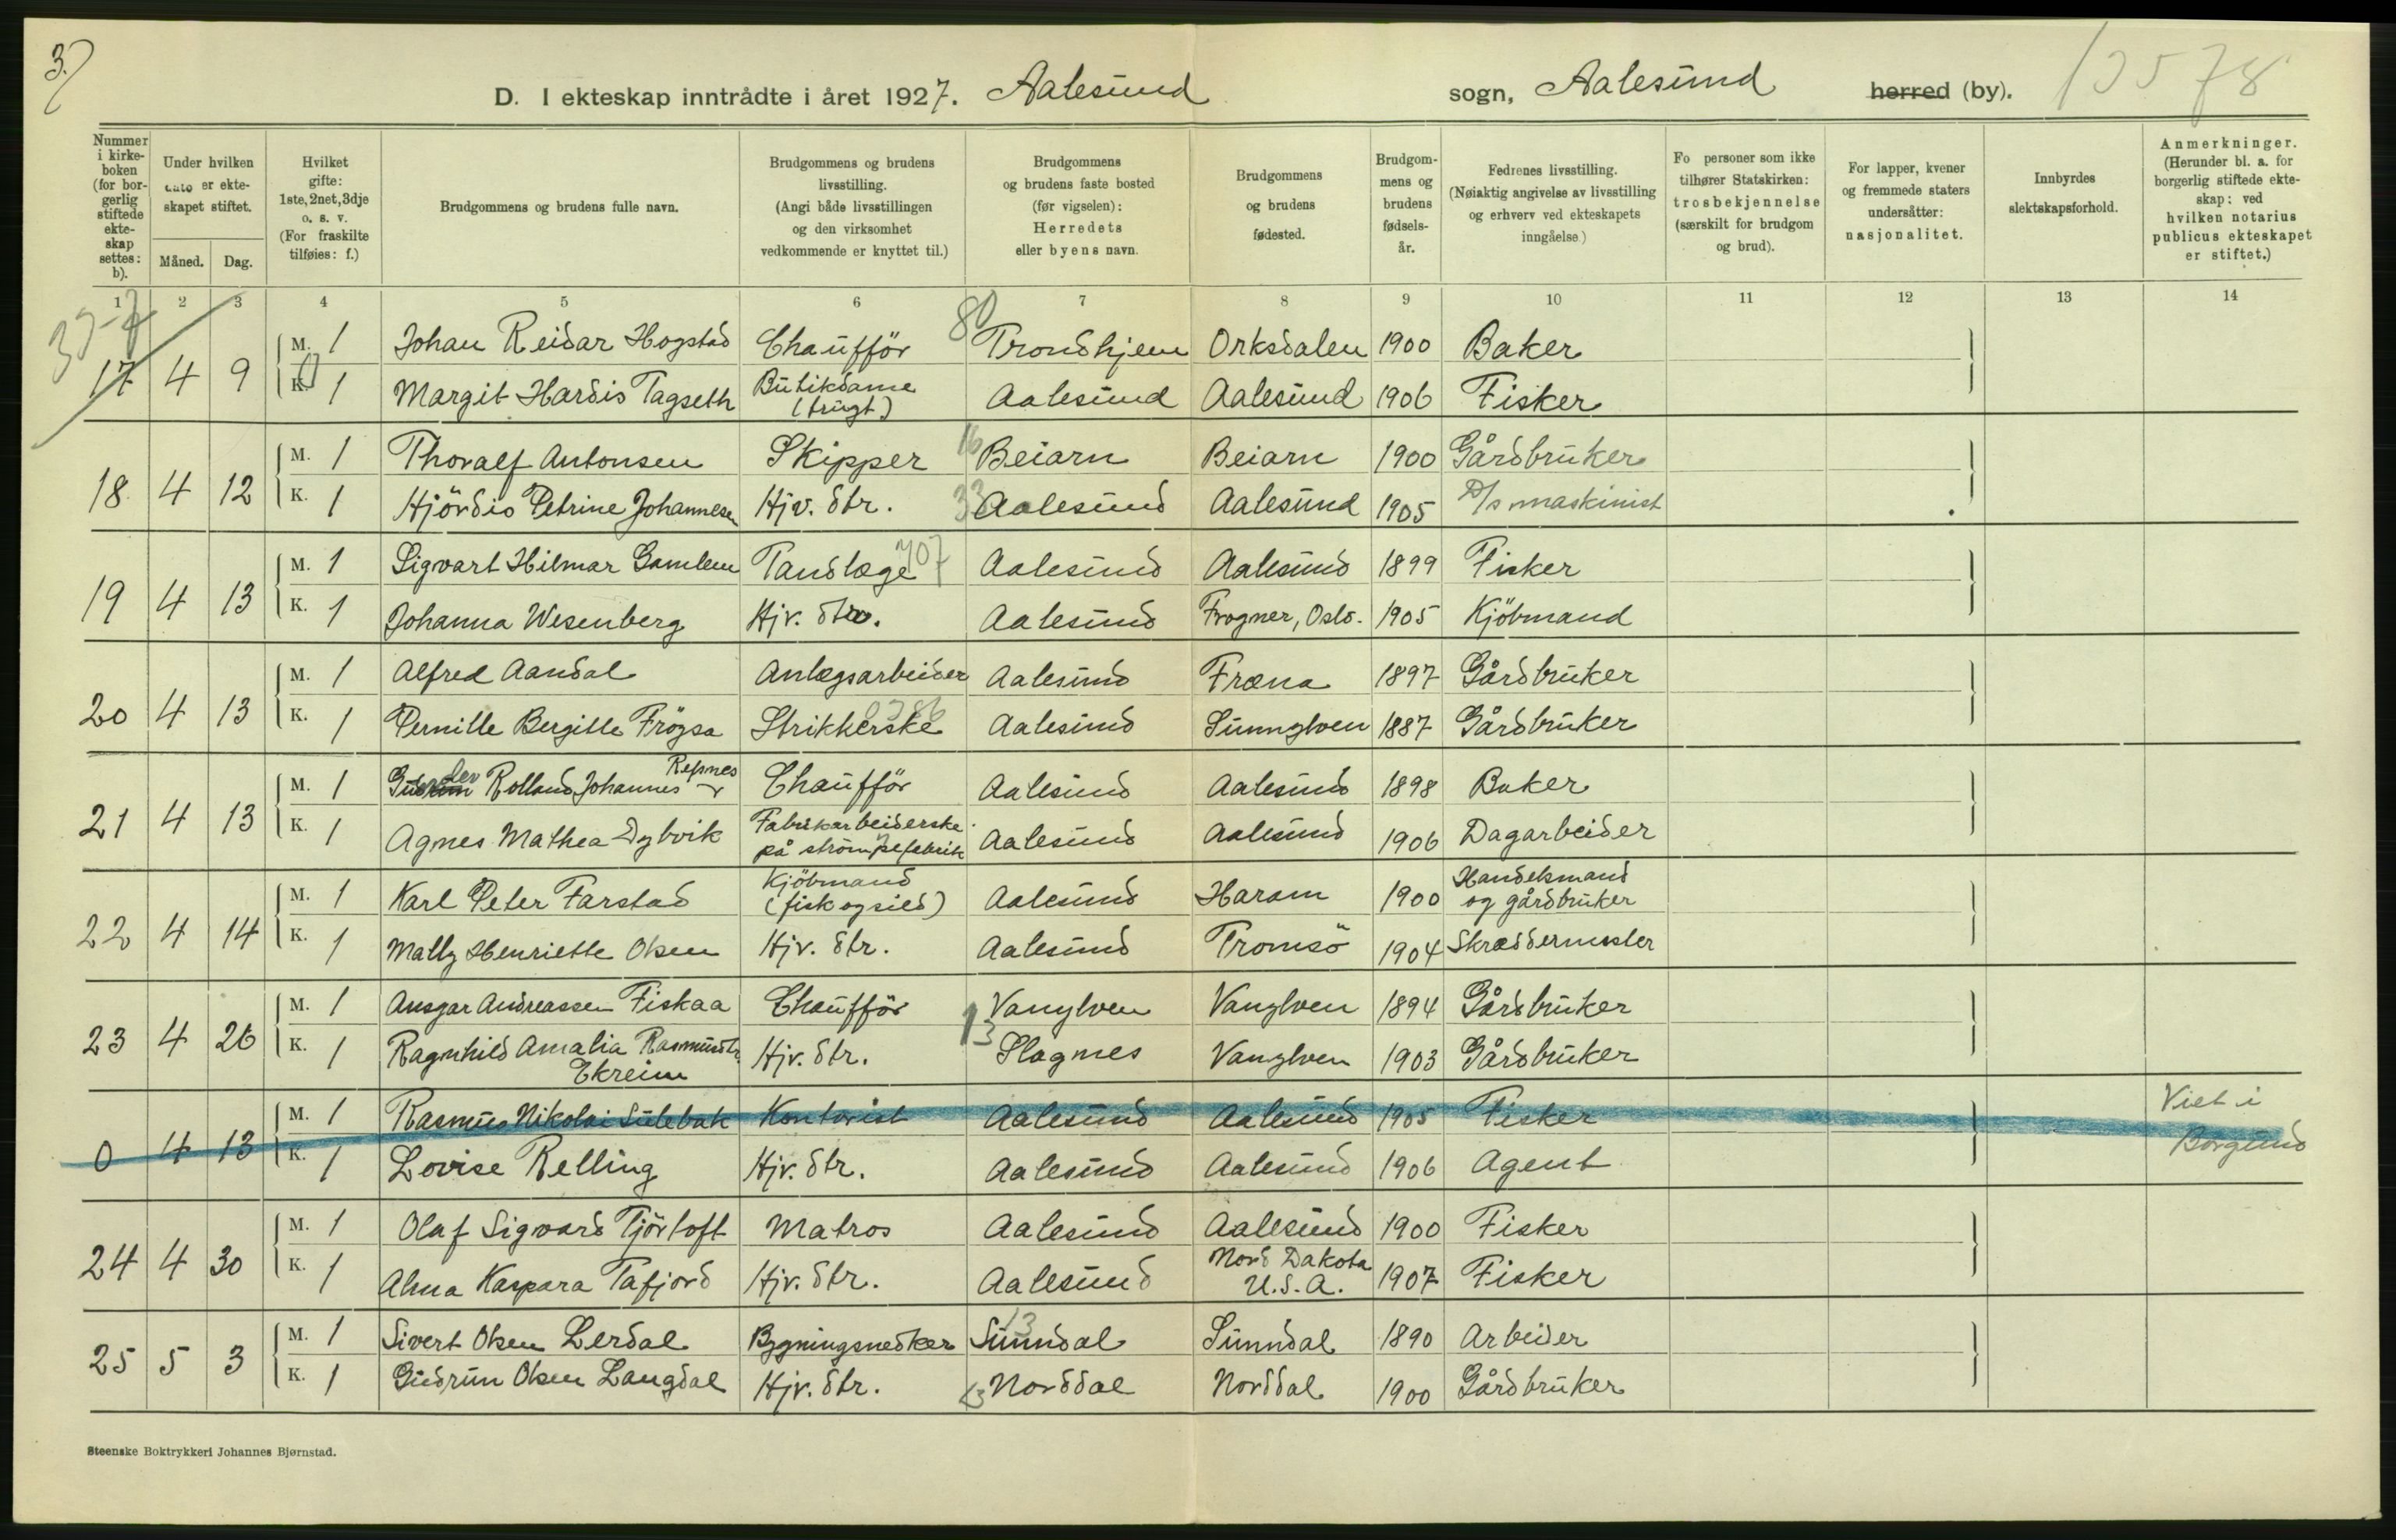 3.
D. I ekteskap inntrådte i året 1927. Aalesund sogn, Aalesund herred (by). 13578
Nummer i kirkeboken (for borgerlig stiftede ekteskap settes: b).
Under hvilken dato er ekteskapet stiftet.
Måned. Dag.
Hvilket gifte: 1ste, 2net, 3dje o. s. v. (For fraskilte tilføies: f.)
Brudgommens og brudens fulle navn.
Brudgommens og brudens livsstilling. (Angi både livsstillingen og den virksomhet vedkommende er knyttet til.)
Brudgommens og brudens faste bosted (før vigselen): Herredets eller byens navn.
Brudgommens og brudens fødested.
Brudgommens og brudens fødselsår.
Fedrenes livsstilling. (Nøiaktig angivelse av livsstilling og erhverv ved ekteskapets inngåelse)
Fo personer som ikke tilhører Statskirken: trosbekjennelse (særskilt for brudgom og brud).
For lapper, kvener og fremmede staters undersåtter: nasjonalitet.
Innbyrdes slektskapsforhold.
Anmerkninger. (Herunder bl. a. for borgerlig stiftede ekteskap: ved hvilken notarius publicus ekteskapet er stiftet.)
1 2 3 4 5 6 7 8 9 10 11 12 13 14
17 4 9 M. 1 Johan Reidar Hogstad Chaufför 80 Trondhjem Orksdalen 1900 Baker
K. 1 Margit Hardis Tagseth Butikdame (frugt) Aalesund Aalesund 1906 Fisker
18 4 12 M. 1 Thoralf Antonsen Skipper 16 Beiarn Beiarn 1900 Gårdbruker
K. 1 Hjördis Petrine Johannesen Hjv. dtr. 33 Aalesund Aalesund 1905 D/s maskinist
19 4 13 M. 1 Sigvart Hilmar Gamlem Tandlæge 707 Aalesund Aalesund 1899 Fisker
K. 1 Johanna Wesenberg Hjv. dtr. Aalesund Frogner, Oslo. 1905 Kjöbmand
20 4 13 M. 1 Alfred Aandal Anlægsarbeider Aalesund Fræna 1897 Gårdbruker
K. 1 Pernille Bergitte Frögsa Strikkerske Aalesund Sunnylven 1887 Gårdbruker
21 4 13 M. 1 Rolland Johannes Refsnes Chaufför Aalesund Aalesund 1898 Baker
K. 1 Agnes Mathea Dybvik Fabrikarbeiderske på strömpefabrik Aalesund Aalesund 1906 Dagarbeider
22 4 14 M. 1 Karl Peter Farstad Kjöbmand (fisk og sild) Aalesund Haram 1900 Handelsmand og gårdbruker
K. 1 Mally Henriette Olsen Hjv. dtr. Aalesund Tromsö 1904 Skræddermester
23 4 26 M. 1 Ansgar Andreassen Fiskaa Chaufför Vanylven Vanylven 1894 Gårdbruker
K. 1 Ragnhild Amalia Rasmusdtr. Ekreim Hjv. dtr. 13 Slagnes Vanylven 1903 Gårdbruker
0 4 13 M. 1 Rasmus Nikolai Sulebak Kontorist Aalesund Aalesund 1905 Fisker Viet i Borgund
K. 1 Lovise Relling Hjv. dtr. Aalesund Aalesund 1906 Agent
24 4 30 M. 1 Olaf Sigvard Tjörtoft Matros Aalesund Aalesund 1900 Fisker
K. 1 Alma Kaspara Tafjord Hjv. dtr. Aalesund Nord Dakota U.S.A. 1907 Fisker
25 5 3 M. 1 Sivert Olsen Lerdal Bygningsnedker 13 Sunndal Sunndal 1890 Arbeider
K. 1 Gudrun Olsen Langdal Hjv. dtr. 13 Norddal Norddal 1900 Gårdbruker
Steenske Boktrykkeri Johannes Bjørnstad.